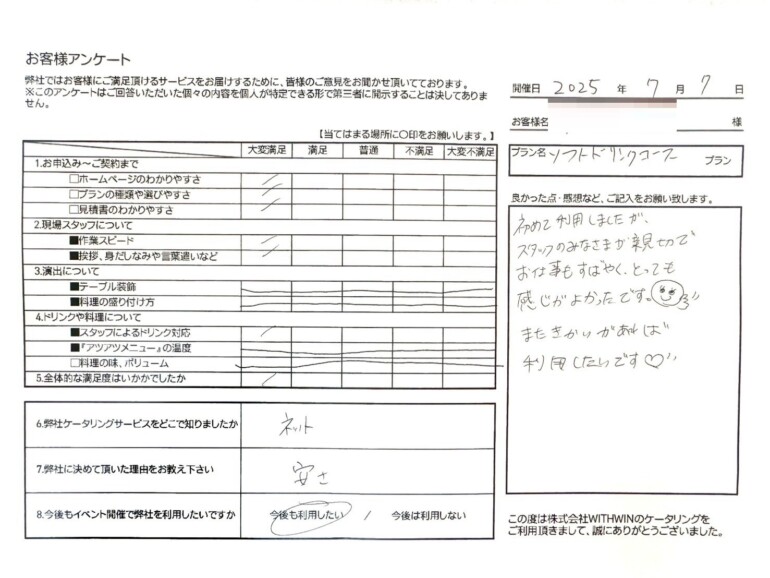 お客様アンケート
弊社ではお客様にご満足頂けるサービスをお届けするために、皆様のご意見をお聞かせ頂いております。
※このアンケートはご回答いただいた個々の内容を個人が特定できる形で第三者に開示することは決してありま
せん。
開催日 2025 年 7 月 7 日
お客様名 様
プラン名 ソフトドリンクコース プラン
【当てはまる場所に〇印をお願いします。】
大変満足 満足 普通 不満足 大変不満足
1.お申込み～ご契約まで
□ホームページのわかりやすさ
□プランの種類や選びやすさ
□見積書のわかりやすさ
2.現場スタッフについて
■作業スピード
■挨拶、身だしなみや言葉遣いなど
3.演出について
■テーブル装飾
■料理の盛り付け方
4.ドリンクや料理について
■スタッフによるドリンク対応
■『アツアツメニュー』の温度
□料理の味、ボリューム
5.全体的な満足度はいかがでしたか
6.弊社ケータリングサービスをどこで知りましたか ネット
7.弊社に決めて頂いた理由をお教え下さい 安さ
8.今後もイベント開催で弊社を利用したいですか 今後も利用したい / 今後は利用しない
良かった点・感想など、ご記入をお願い致します。
初めて利用しましたが、
スタッフのみなさまが親切で
お仕事もすばやく、とっても
感じがよかったです。
またきかいがあれば
利用したいです♡
この度は株式会社WITHWINのケータリングを
ご利用頂きまして、誠にありがとうございました。